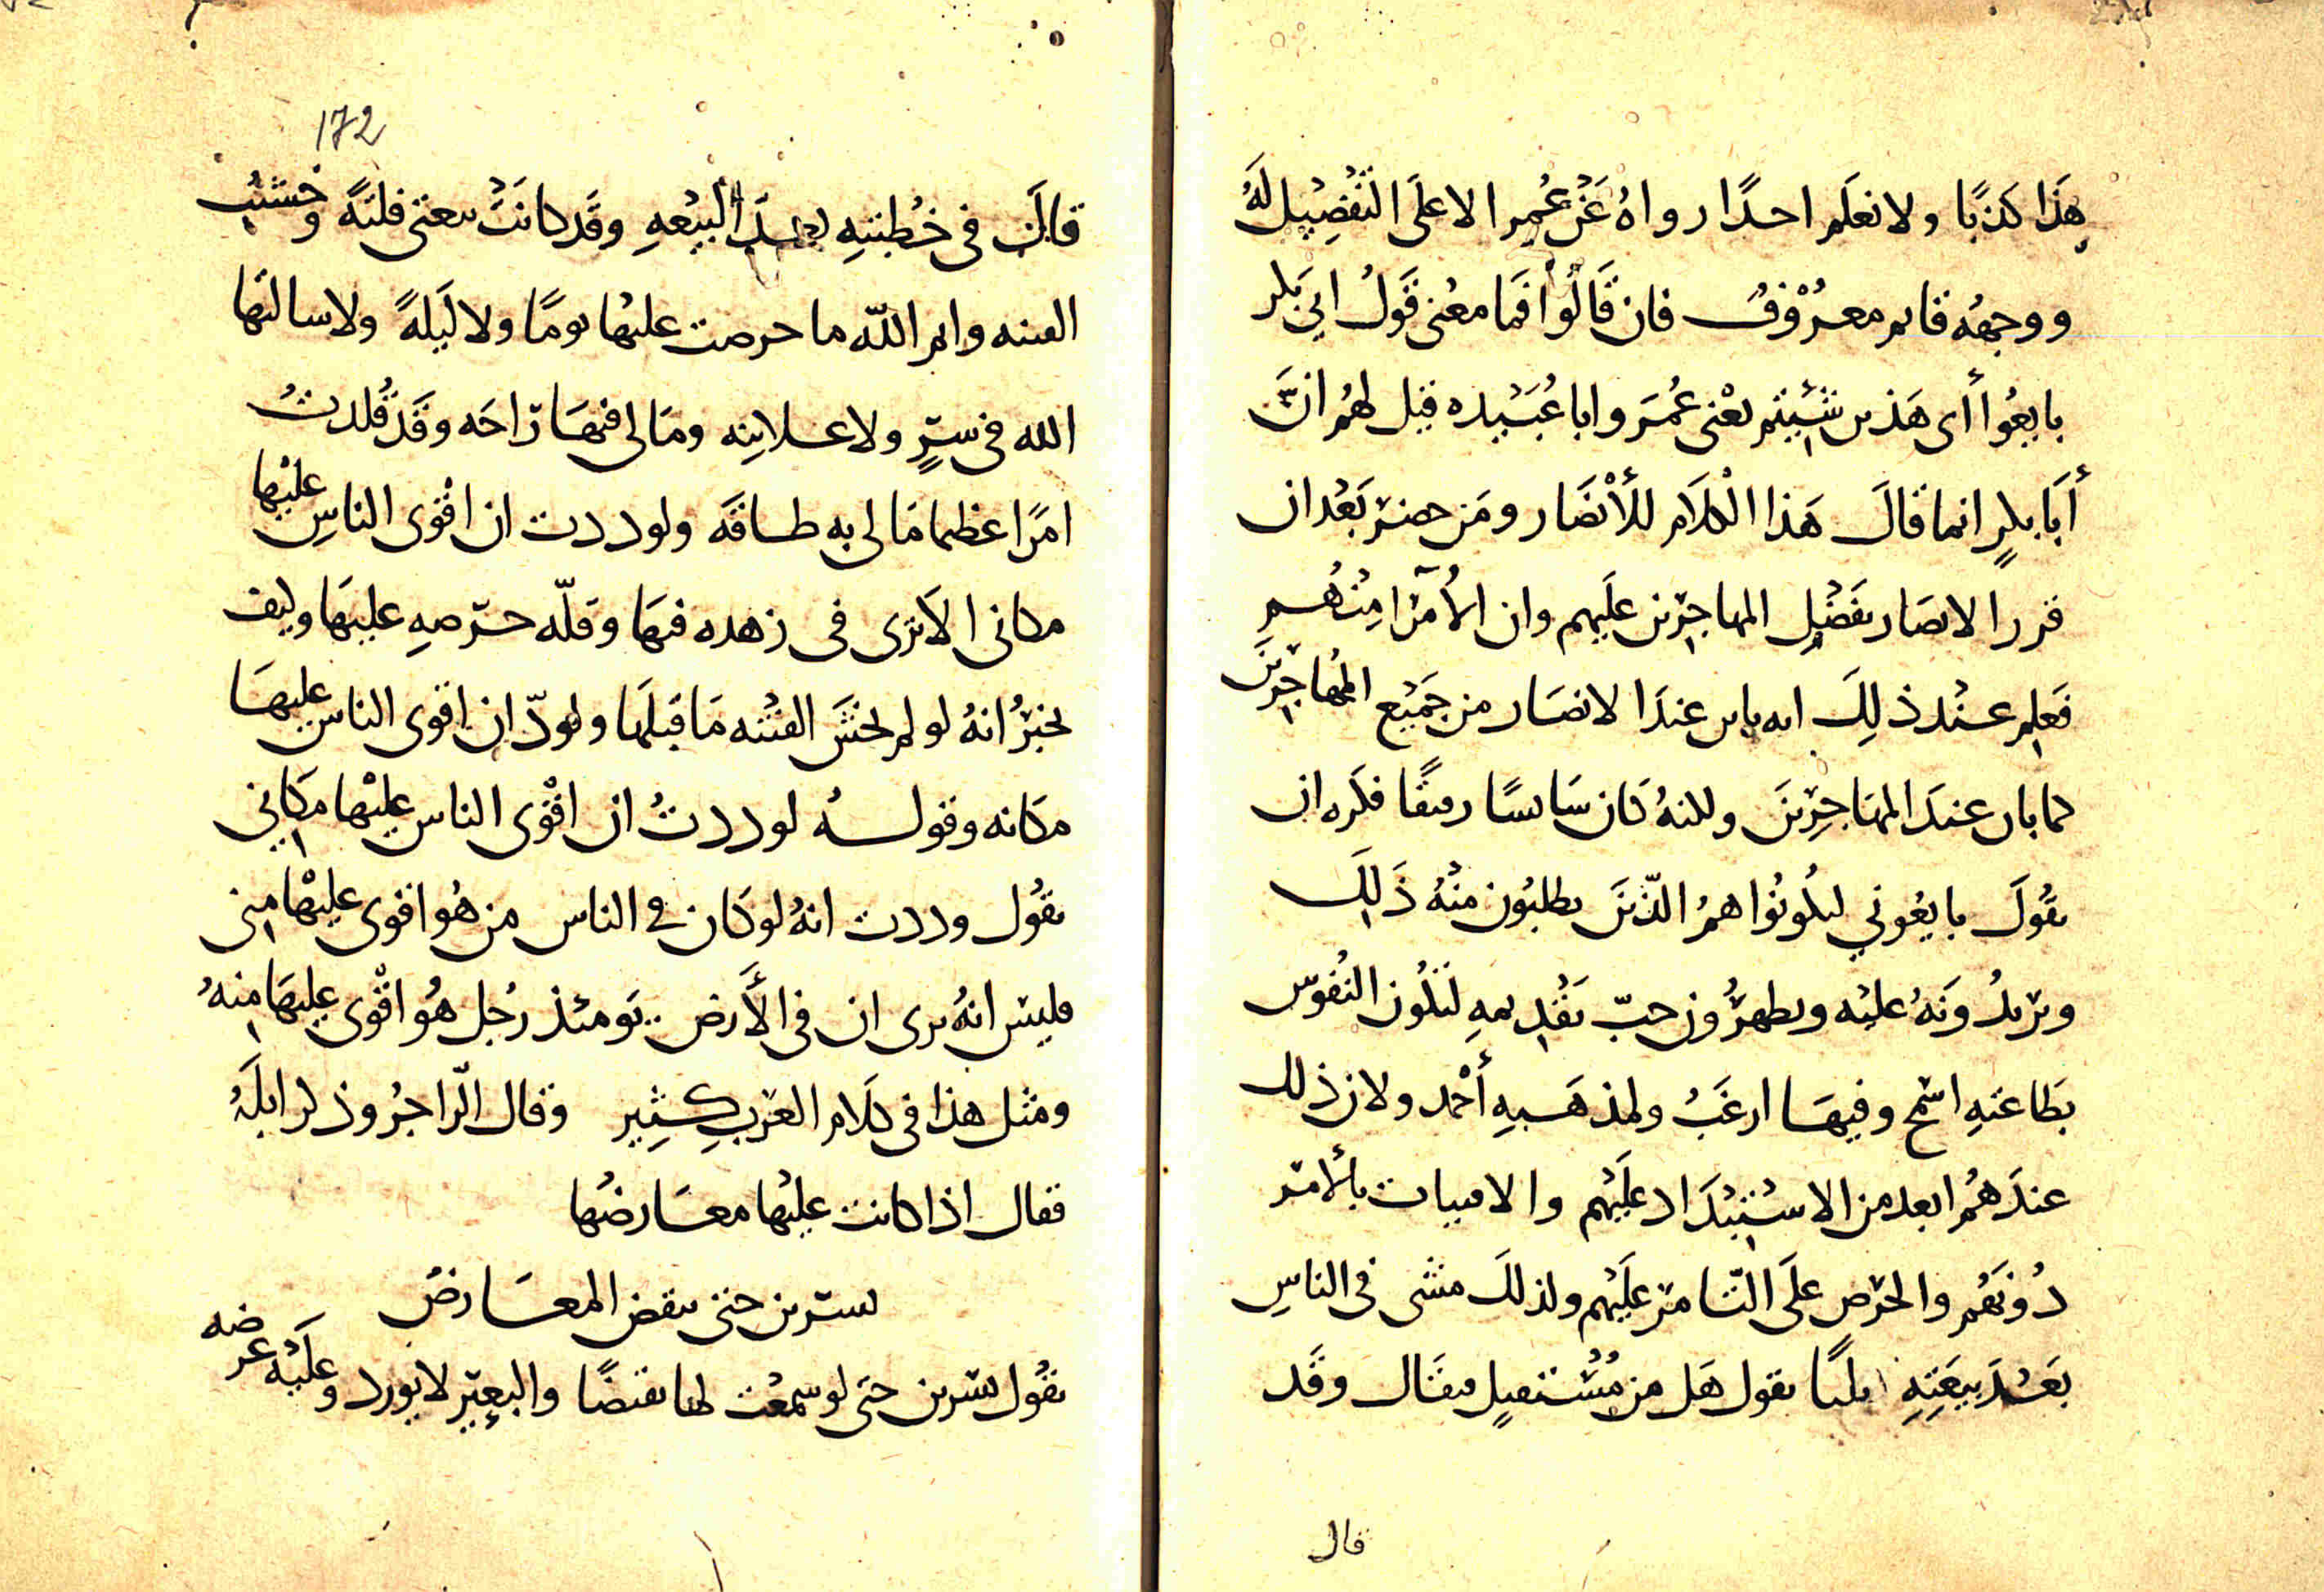 هَذَا كَذبًا ولا نعلَم احدًا رواهُ عَنْ عُمر الا علَى التفْضِيل لَهُ
ووجهُه قايم معرُوْف فان قَالُوا فما معْنى قَولُ ابي بَكر
بايعُوا أى هَذين شئِتم يعْنى عُمَر وابا عُبَيْده قيل لهُم انَّ
أبَا بكرٍ انما قالَ هَذا الْكلَام للأنْصَار ومَن حضر بَعْد ان
قرر الانصَار بفَضْل المهاجرين علَيهم وان الأُمَرا مِنْهُم
فعَلِم عنْد ذلِكَ انه باين عندَ الانصَار من جَميْع المُهاجرِينَ
كما بان عندَ المهَاجِرينَ ولكنهُ كَان سَايسًا رفيقًا فكَره ان
يقُولَ بايعُوني ليكُونُوا همُ الذّينَ يطلبُون منْهُ ذَلِكَ
ويريدُونَهُ عليْه ويظهرُون حبّ تقْديمهِ لتكُون النُفُوس
بَطاعتهِ اسْمح وفيهَا ارغَبُ ولمذهَبهِ أحْمد ولان ذلك
عندَهُم ابعد من الاستبْدَاد علَيْهم والافتيات بالأمر
دُونَهُم والحرْص علَى التّامر علَيْهم ولذلكَ مشى فى الناسِ
بَعْدَ بيعَتِهِ ثلثًا يقول هَل من مُسْتقيلٍ فيقَال وقَد
قال
172
قالَ فى خُطبتهِ بعدَ البيْعهِ وقَد كانَتْ بيعتى فلتهً وخشيتُ
الفتنه وايم اللّه ما حرصت عليْها يومًا ولا لَيلهً ولا سالتُها
الله فى سترٍ ولا علانيه ومَا لى فيهَا رَاحَه وقَد قُلدتُ
امرًا عظيما مَا لى به طاقَه ولوددت ان اقْوى الناسِ عليْها
مكانى الاَ ترى فى زهده فيهَا وقلّه حرصهِ عليهَا وكيف
يخبرُ انهُ لو لم يخشَ الفتْنه مَا قبلَها ولودّ ان اقوى الناس عليهَا
مكَانه وقولهُ لوددتُ ان اقْوى الناس عليْها مكَاني
يقُول وددت انهُ لو كَان في الناس من هُو اقوى عليْها مِنى
فليسَ انهُ يرى ان فى الأَرض يَومئذ رجُل هُو اقْوى عليهَا منهُ
ومثل هذا فى كلَام العَرب كثِير وقال الرّاجزُ وذكر ابلَهُ
فقال اذا كانت عليْها معَارضُها
نسترين حتى ينقض المعَارضُ
يقُول نسرين حتى لو سمعْت لها نقيضًا والبعِير لا يورد وعلَيْه عرضه